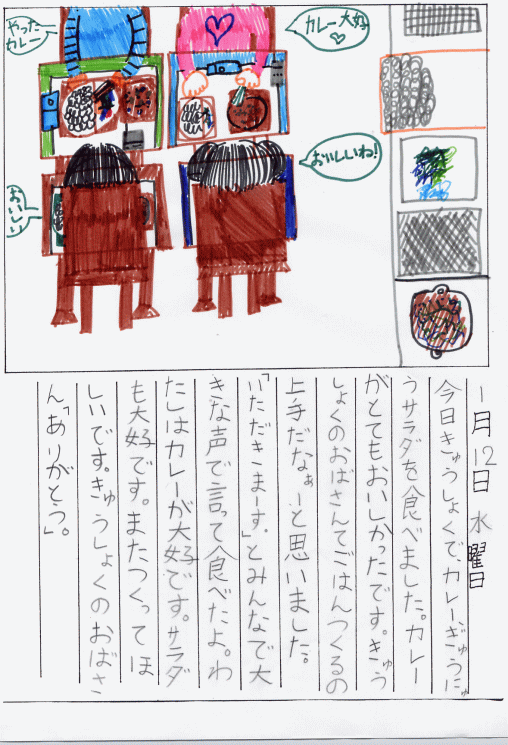 やった
カレー
カレー大好
おいしいね!
おいしい
1月12日 水曜日
今日きゅうしょくで、カレー、ぎゅうにゅ
うサラダを食べました。カレー
がとてもおいしかったです。きゅう
しょくのおばさんてごはんつくるの
上手だなぁーと思いました。
「いただきまーす。」とみんなで大
きな声で言って食べたよ。わ
たしはカレーが大好です。サラダ
も大好です。またつくってほ
しいです。きゅうしょくのおばさ
ん「ありがとう。